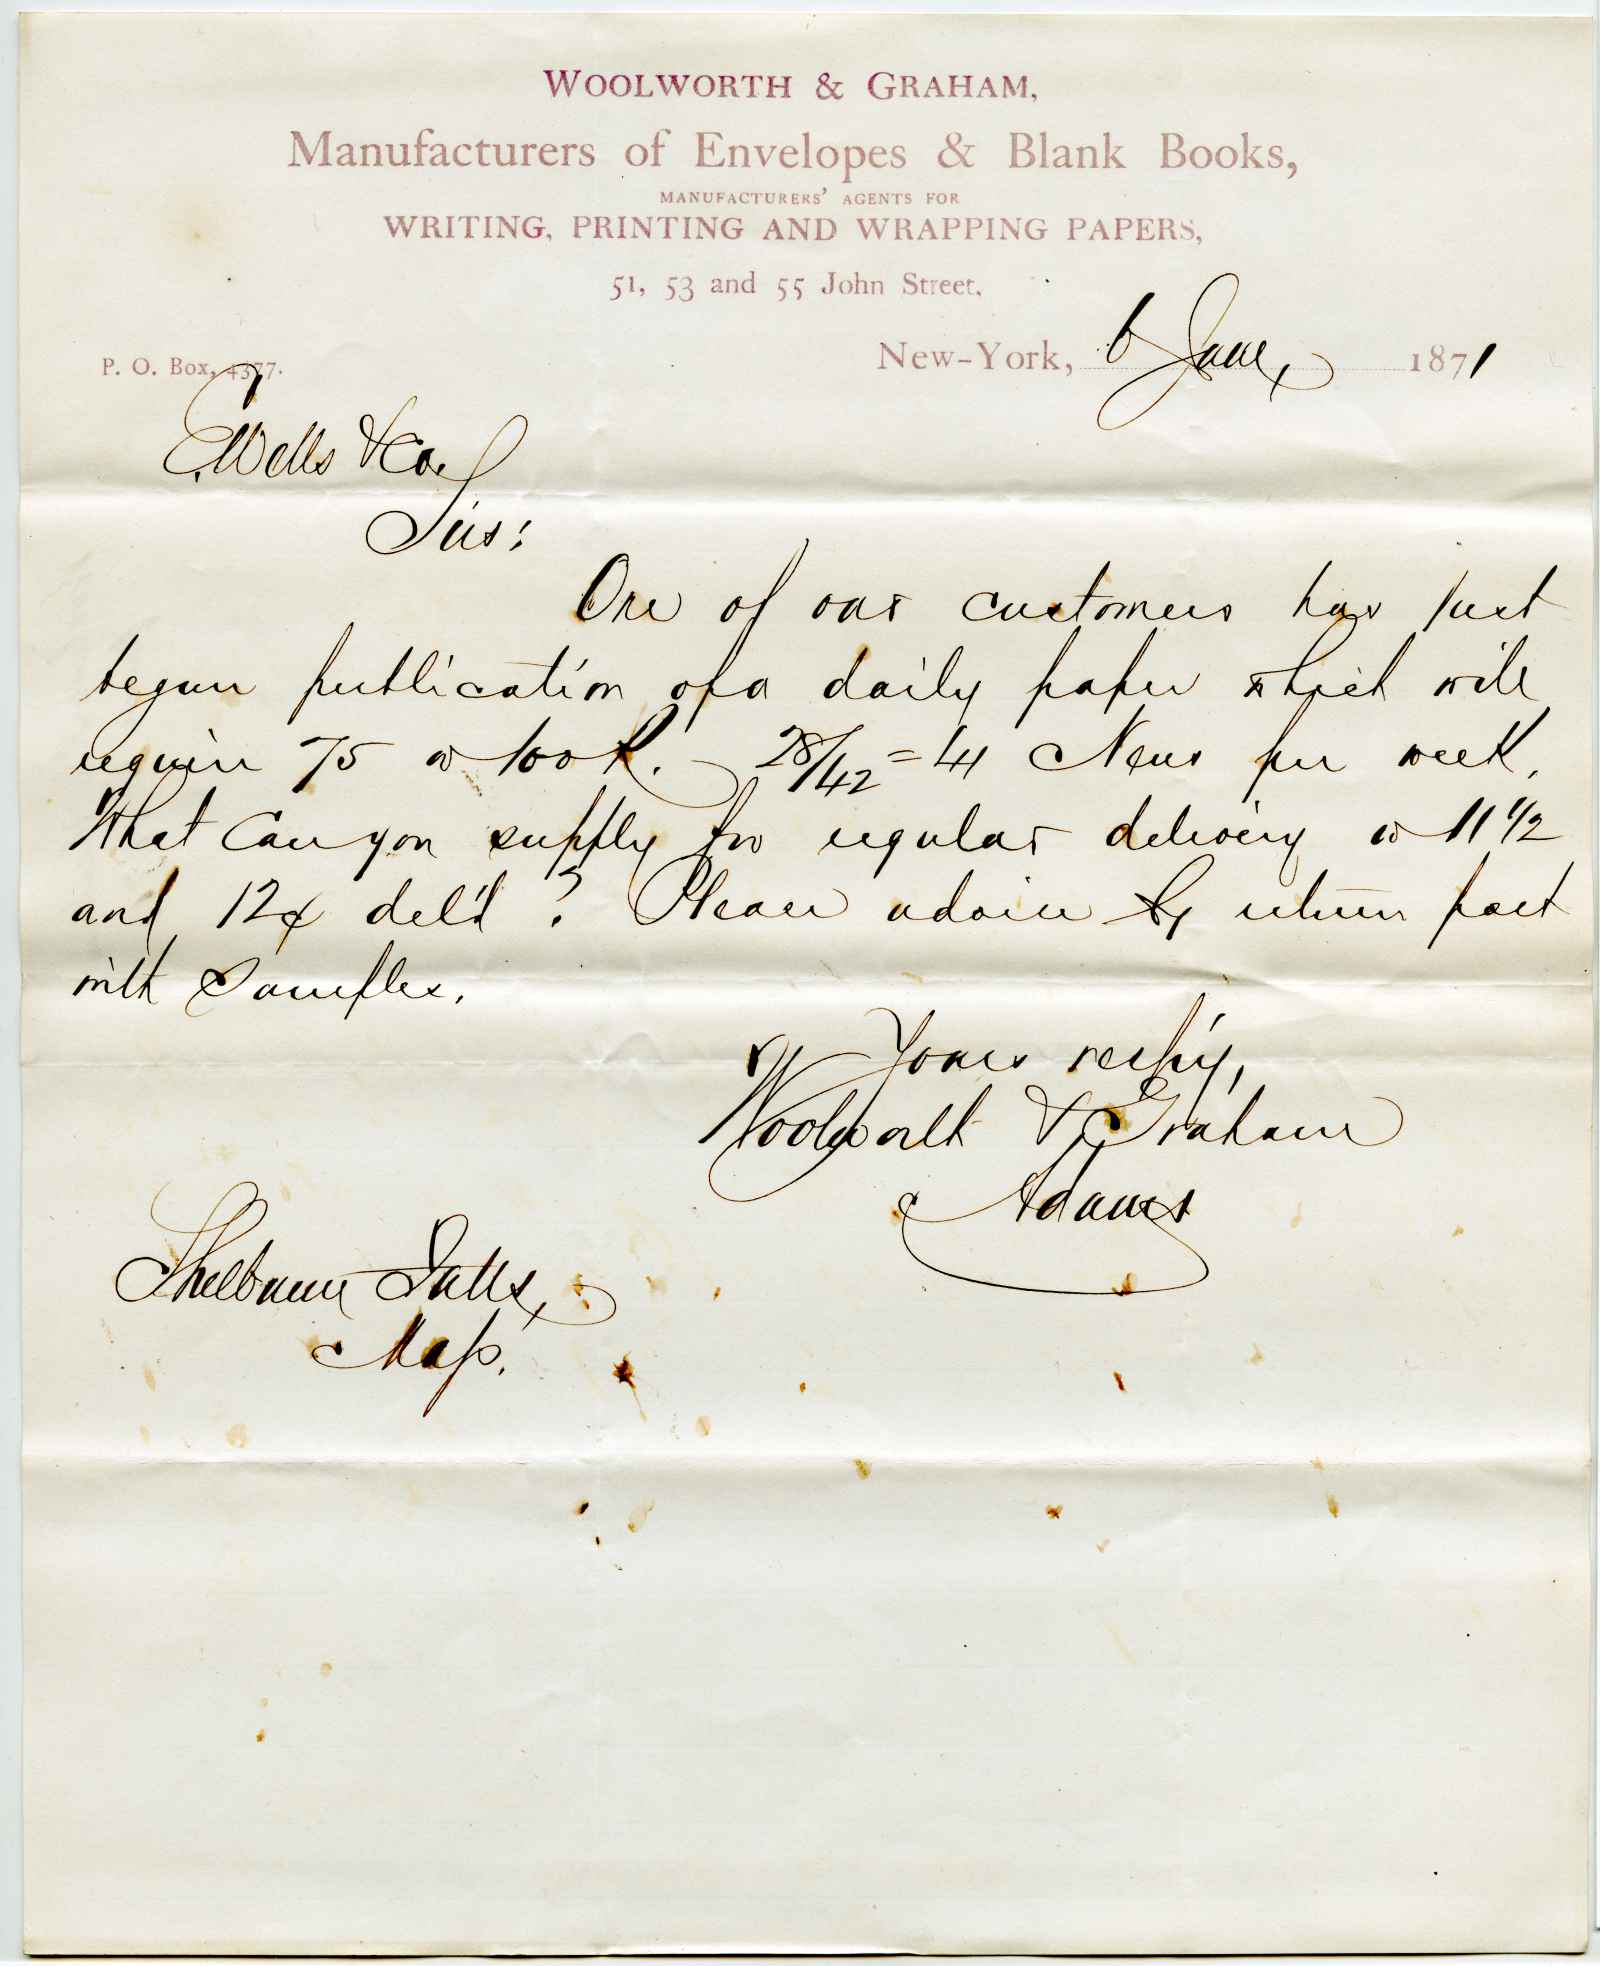 WOOLWORTH & GRAHAM,
Manufacturers of Envelopes & Blank Books,
MANUFACTURERS' AGENTS FOR
WRITING, PRINTING AND WRAPPING PAPERS,
51, 53 and 55 John Street.
New-York, 6 June, 1871
P. O. Box, 4377.
E. Wells & Co.
Sirs:
One of our customers has just
begun publication of a daily paper which will
require 75 or 100 R. 28/42 = 44 News per week.
What can you supply for regular delivery @ 11 1/2
and 12¢ del'd? Please advise by return post
with samples.
Yours resp'y,
Woolworth & Graham
Adams
Shelburne Falls,
Mass.